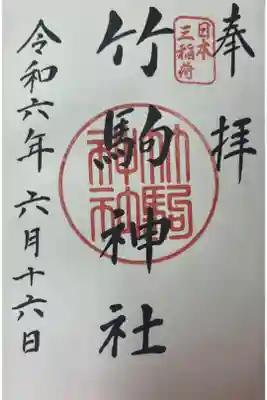 奉拝
日本
三稲荷
竹駒神社
竹駒
神社
令和六年 六月十六日